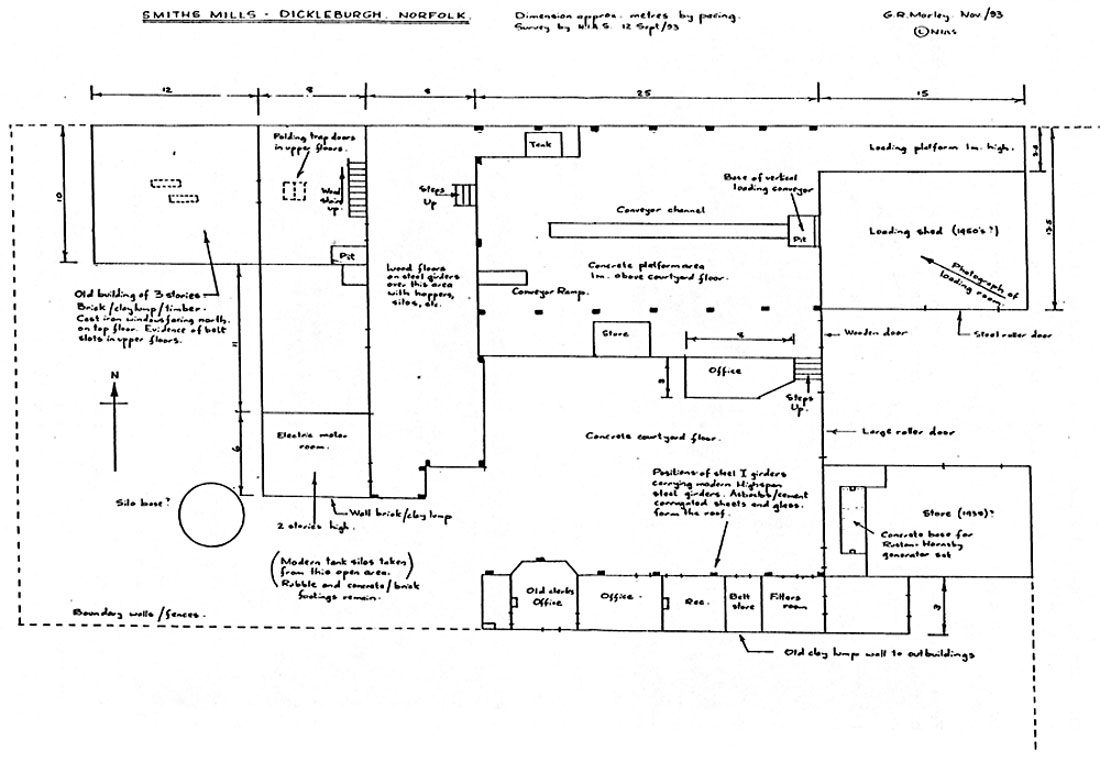 SMITHS MILLS - DICKLEBURGH, NORFOLK.
Dimension approx. metres by pacing.
Survey by N.I.A.S. 12 Sept/93
G.R. Morley. Nov./93
© NIAS
12
8
8
25
15
Folding trap doors
in upper floors.
Wood
stairs
up.
Steps
Up
Tank
Loading platform 1m. high.
Base of vertical
loading conveyor
Conveyor channel
Pit
Loading shed (1950's?)
12.5
10
Pit
Wood floors
on steel girders
over this area
with hoppers,
silos, etc.
Concrete platform area
1m. above courtyard floor.
Conveyor Ramp.
Photograph of
loading room.
Old building of 3 stories.
Brick/clay lump/timber.
Cast iron windows facing north.
on top floor. Evidence of belt
slots in upper floors.
11
Store
8
Wooden door
Steel roller door
N
3
Office
Steps
Up.
Electric motor
room.
6
Concrete courtyard floor.
Large roller door
Silo base?
2 stories high.
Wall brick/clay lump
Positions of steel I girders
carrying modern Highspan
steel girders. Asbestos/cement
corrugated sheets and glass.
form the roof.
Store (1938)?
Concrete base for
Ruston-Hornsby
generator set
(Modern tank silos taken
from this open area.
Rubble and concrete/brick
footings remain.)
Boundary walls/fences.
Old clerks
Office
Office.
Rec.
Belt
store
Fitters
room
3
Old clay lump wall to outbuildings